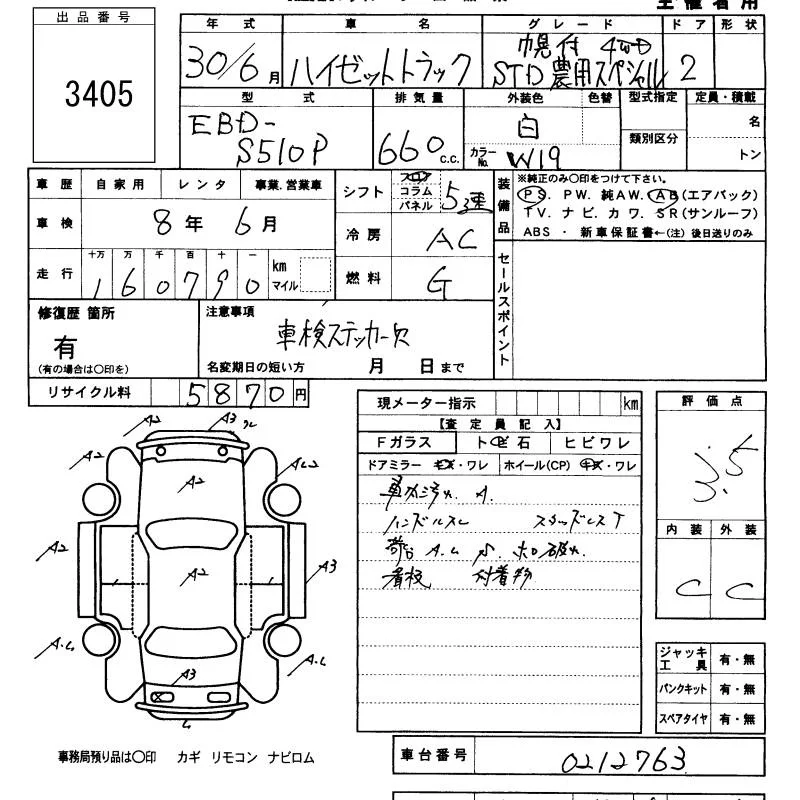 主催者用
出品番号
3405
年式 車名 グレード ドア 形状
30/6月 ハイゼットトラック 幌付 4WD
STD 農用スペシャル 2
型式 排気量 外装色 色替 型式指定 定員・積載
EBD-
S510P 660 c.c. 白 名
類別区分
カラーNo. W19 トン
車歴 自家用 レンタ 事業.営業車
シフト フロア コラム パネル 5速
装備品 ※純正のみ〇印をつけて下さい。
PS. PW. 純AW. AB(エアバック)
TV. ナビ. カワ. SR(サンルーフ)
ABS ・ 新車保証書←(注) 後日送りのみ
車検 8年 6月
冷房 AC
走行 十万 万 千 百 十 一
160790 km マイル
燃料 G
セールスポイント
修復歴 箇所
有
(有の場合は〇印を)
注意事項
車検ステッカー欠
名変期日の短い方 月 日まで
リサイクル料 5870円
現メーター指示 km
評価点
3.5
【査定員記入】
Fガラス トビ石 ヒビワレ
ドアミラー キズ・ワレ ホイール(CP) キズ・ワレ
車内汚れ. A.
ハンドルスレ スタッドレスT
荷台 A.L
看板 付着物
内装 外装
C C
A2 A3
A2 A2 AL2
A2 A2 A3
A.L A3 A.L
L
ジャッキ 工具 有・無
パンクキット 有・無
スペアタイヤ 有・無
事務局預り品は〇印 カギ リモコン ナビロム
車台番号 0212763